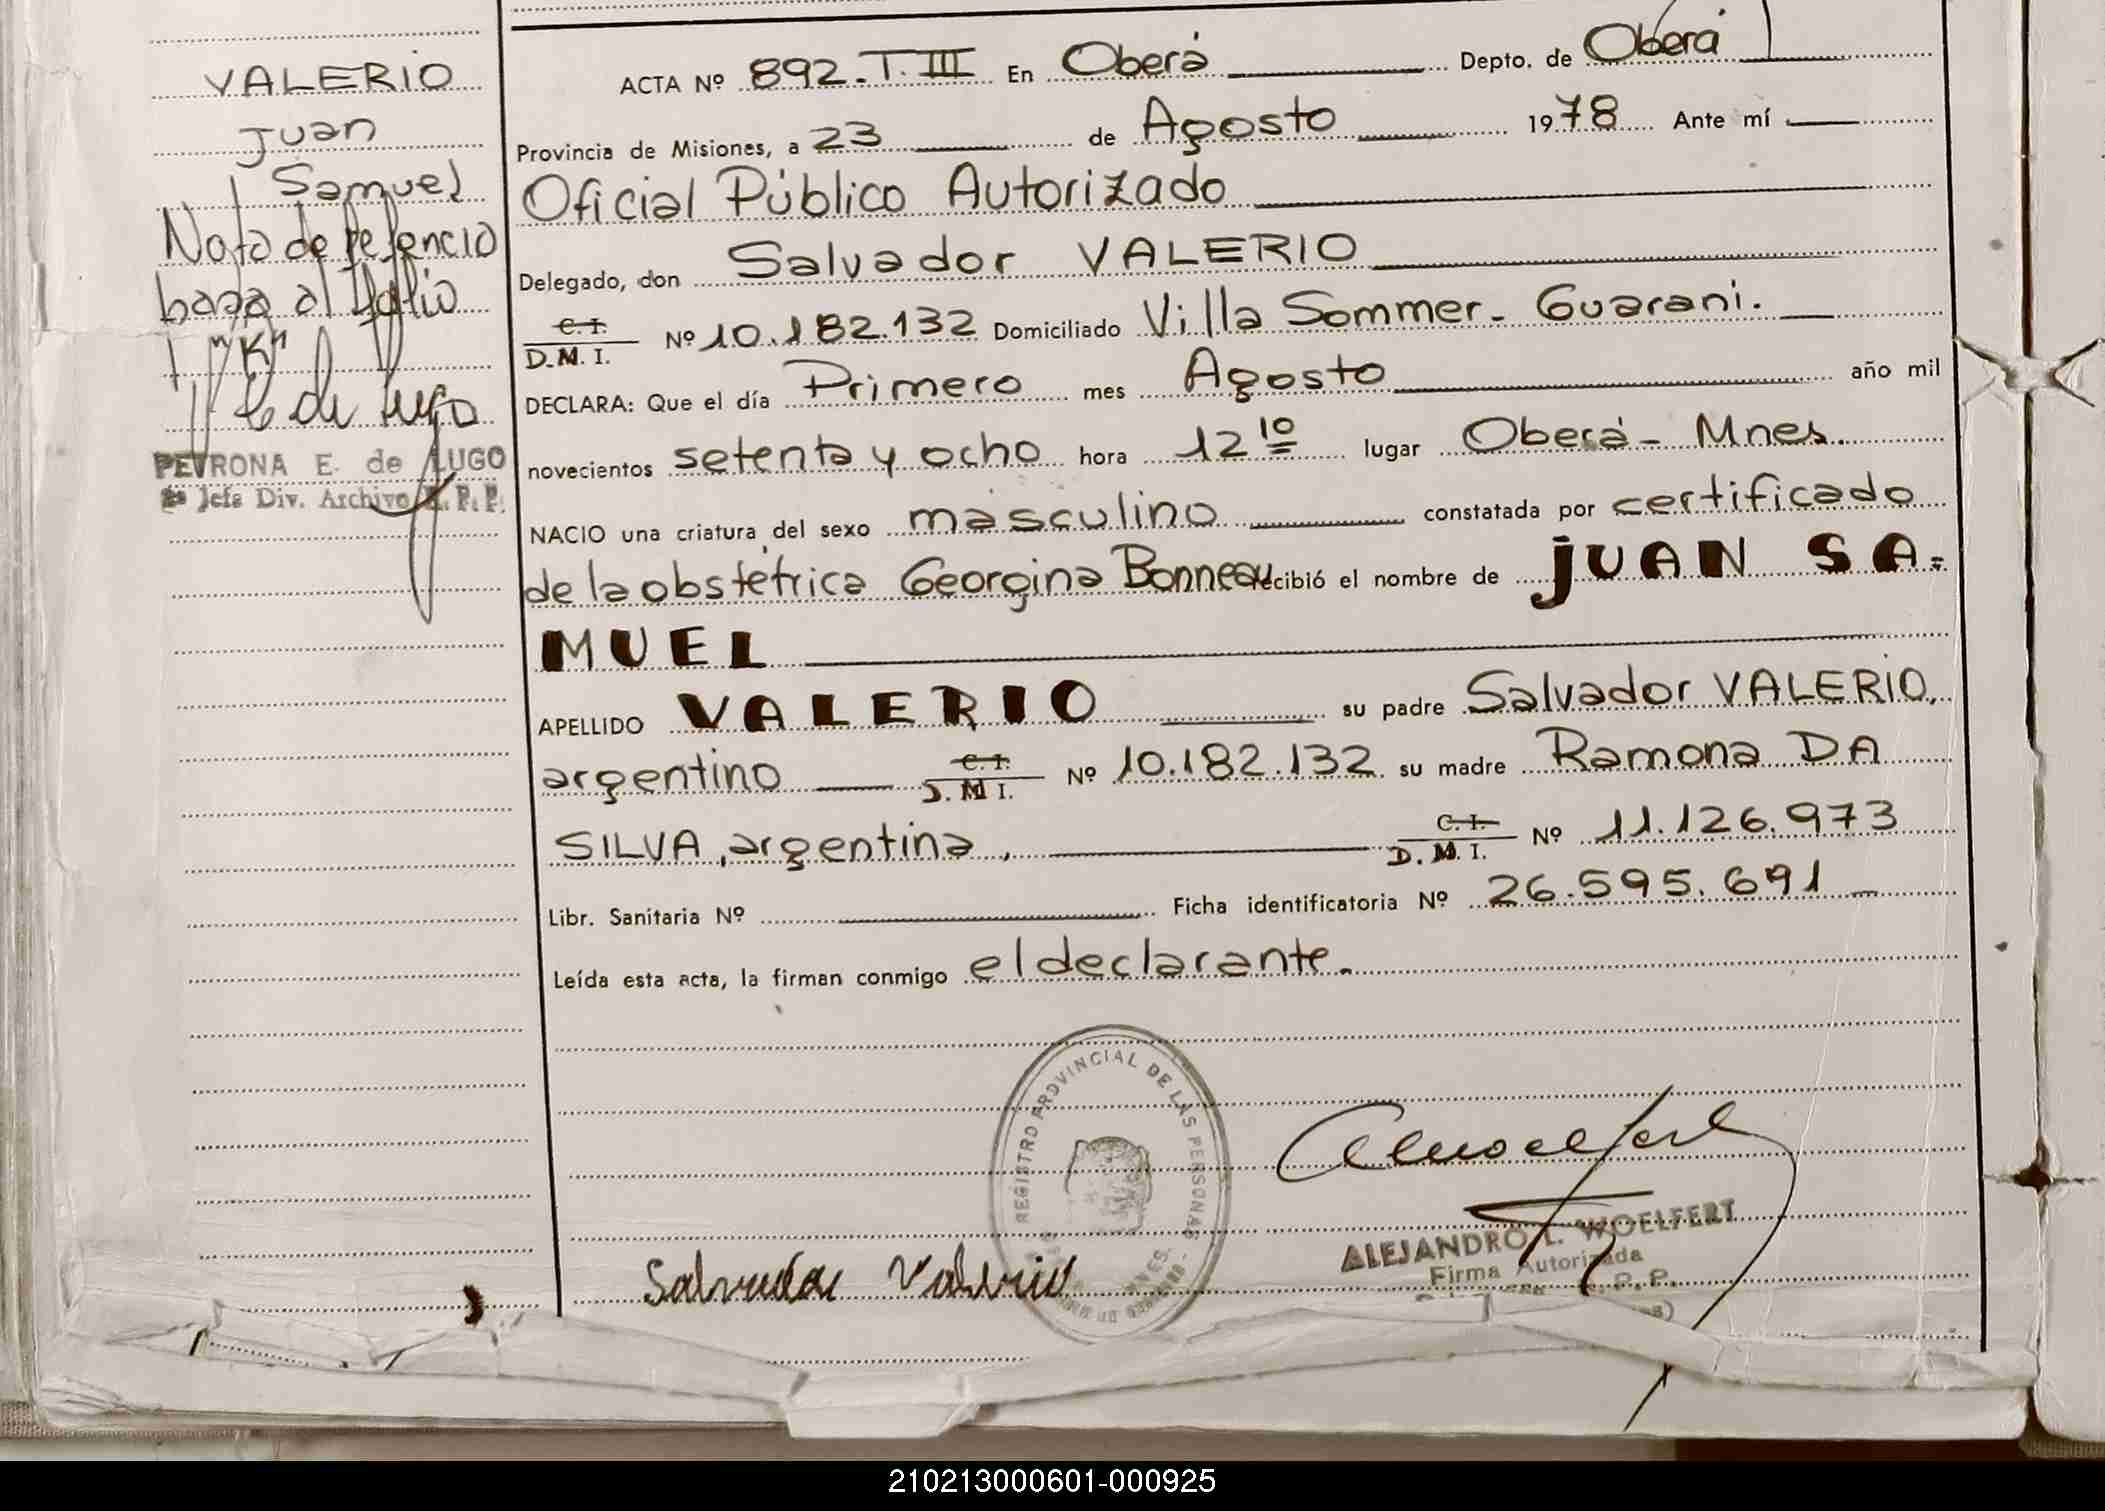 VALERIO
Juan
Samuel
Nota de referencia
baja al folio
"K"
PETRONA E. de LUGO
Jefa Div. Archivo R. P. P.
ACTA Nº 892-T.III En Oberá Depto. de Oberá
Provincia de Misiones, a 23 de Agosto 1978 Ante mí
Oficial Público Autorizado
Delegado, don Salvador VALERIO
C.I.
D.M.I. Nº 10.182.132 Domiciliado Villa Sommer - Guarani.
DECLARA: Que el día Primero mes Agosto año mil
novecientos setenta y ocho hora 12 10 lugar Oberá - Mnes.
NACIO una criatura del sexo masculino constatada por certificado
de la obstétrica Georgina Bonneau recibió el nombre de JUAN SA=
MUEL
APELLIDO VALERIO su padre Salvador VALERIO,
argentino C.I. D.M.I. Nº 10.182.132 su madre Ramona DA
SILVA, argentina, C.I. D.M.I. Nº 11.126.973
Libr. Sanitaria Nº Ficha identificatoria Nº 26.595.691
Leída esta acta, la firman conmigo el declarante.
REGISTRO PROVINCIAL DE LAS PERSONAS
Salvador Valerio
ALEJANDRO L. WOELFERT
Firma Autorizada
210213000601-000925